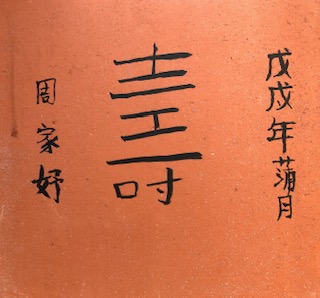 戊戌年蒲月
壽
周家妤